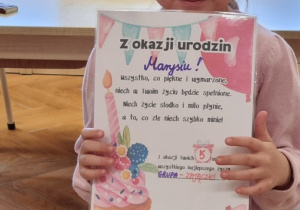 Z okazji urodzin
Marysiu!
Wszystko, co piękne i wymarzone,
niech w Twoim życiu będzie spełnione.
Niech życie słodko i miło płynie,
a to, co złe niech szybko minie!
Z okazji 5
wszystkiego najlepszego życzy
GRUPA -